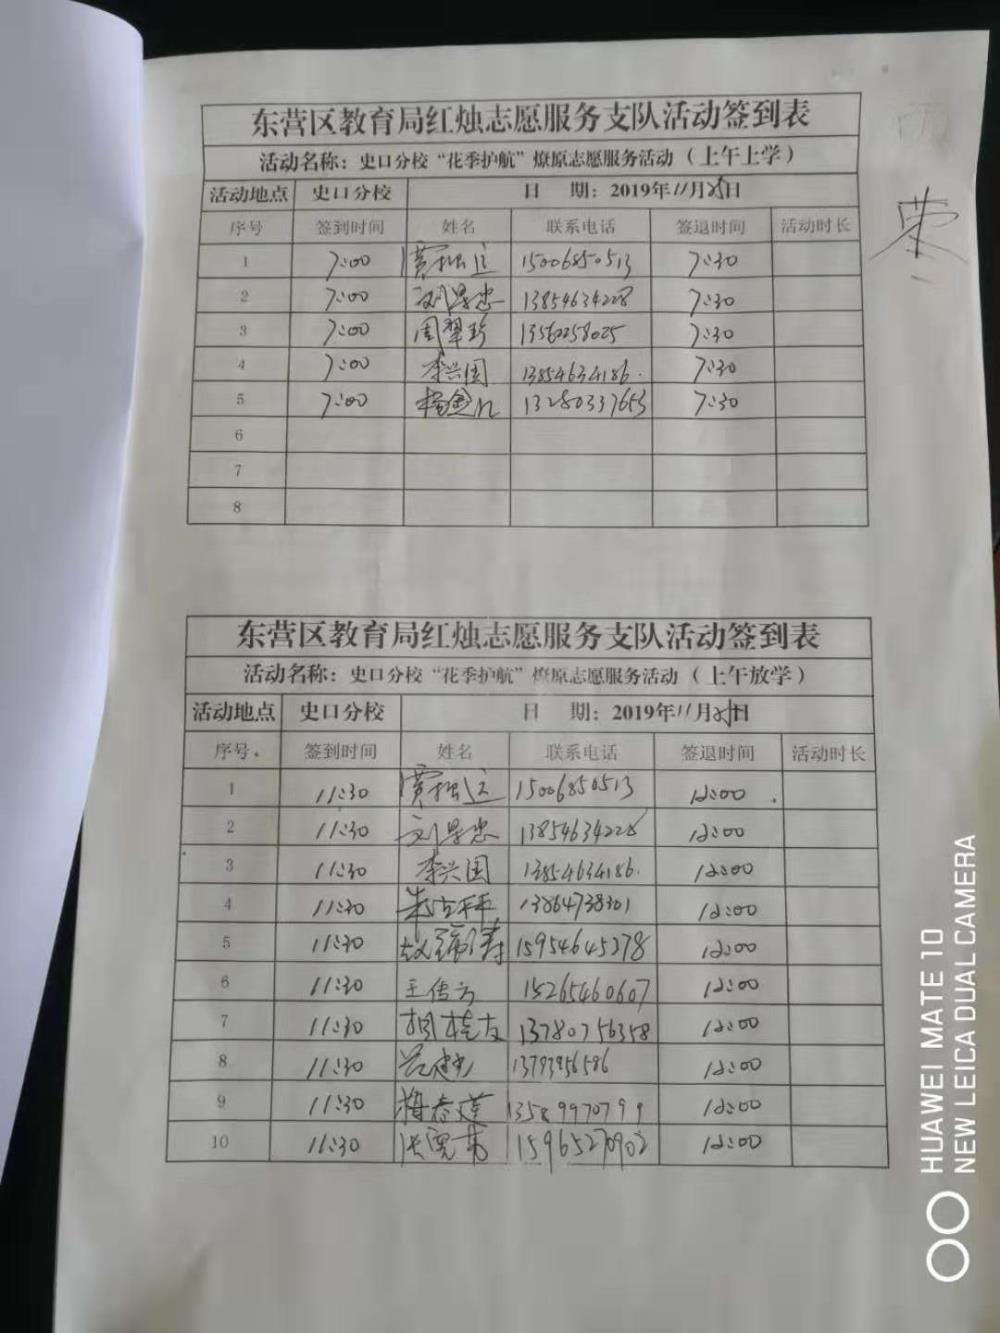 东营区教育局红烛志愿服务支队活动签到表
活动名称：史口分校“花季护航”燎原志愿服务活动（上午上学）
活动地点 史口分校 日 期：2019年11月25日
序号 签到时间 姓名 联系电话 签退时间 活动时长
1 7:00 15006850513 7:30
2 7:00 刘景忠 13854634228 7:30
3 7:00 周翠珍 13562258025 7:30
4 7:00 李兴国 13854634186. 7:30
5 7:00 13280337653 7:30
6
7
8
东营区教育局红烛志愿服务支队活动签到表
活动名称：史口分校“花季护航”燎原志愿服务活动（上午放学）
活动地点 史口分校 日 期：2019年11月25日
序号 签到时间 姓名 联系电话 签退时间 活动时长
1 11:30 15006850513 12:00
2 11:30 刘景忠 13854634228 12:00
3 11:30 李兴国 13854634186. 12:00
4 11:30 13864738301 12:00
5 11:30 15954645278 12:00
6 11:30 王传方 15265460607 12:00
7 11:30 胡桂友 13780756358 12:00
8 11:30 12:00
9 11:30 13589970799 12:00
10 11:30 15965270902 12:00
HUAWEI MATE 10
NEW LEICA DUAL CAMERA